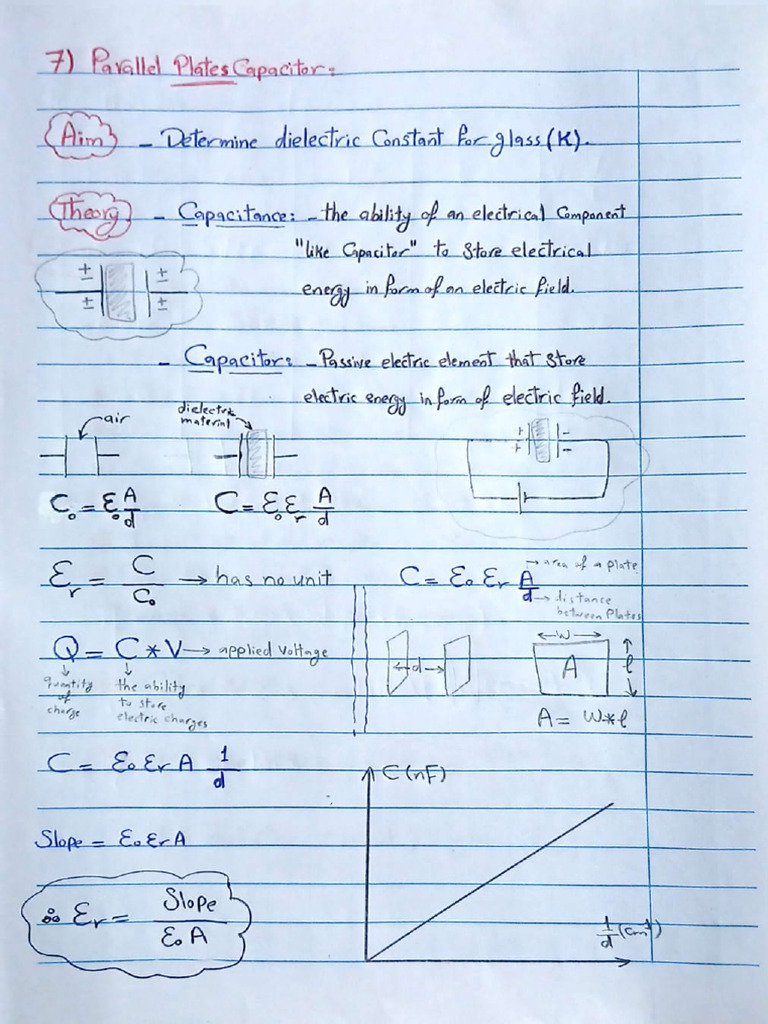 7) Parallel Plates Capacitor:
Aim - Determine dielectric Constant for glass (K).
Theory - Capacitance: - the ability of an electrical Component
"like Capacitor" to store electrical
energy in form of an electric field.
± ±
± ±
- Capacitor: - Passive electric element that store
electric energy in form of electric field.
air
dielectric
material
+ -
+ -
C₀ = ε₀ A/d
C = ε₀ εr A/d
εr = C/C₀ → has no unit
C = ε₀ εr A/d
→ area of a plate
→ distance
between Plates
Q = C * V → applied voltage
quantity
of
charge
the ability
to store
electric charges
d
w
A
l
A = w * l
C = ε₀ εr A 1/d
C (nF)
Slope = ε₀ εr A
∴ εr = Slope / ε₀ A
1/d (cm⁻¹)